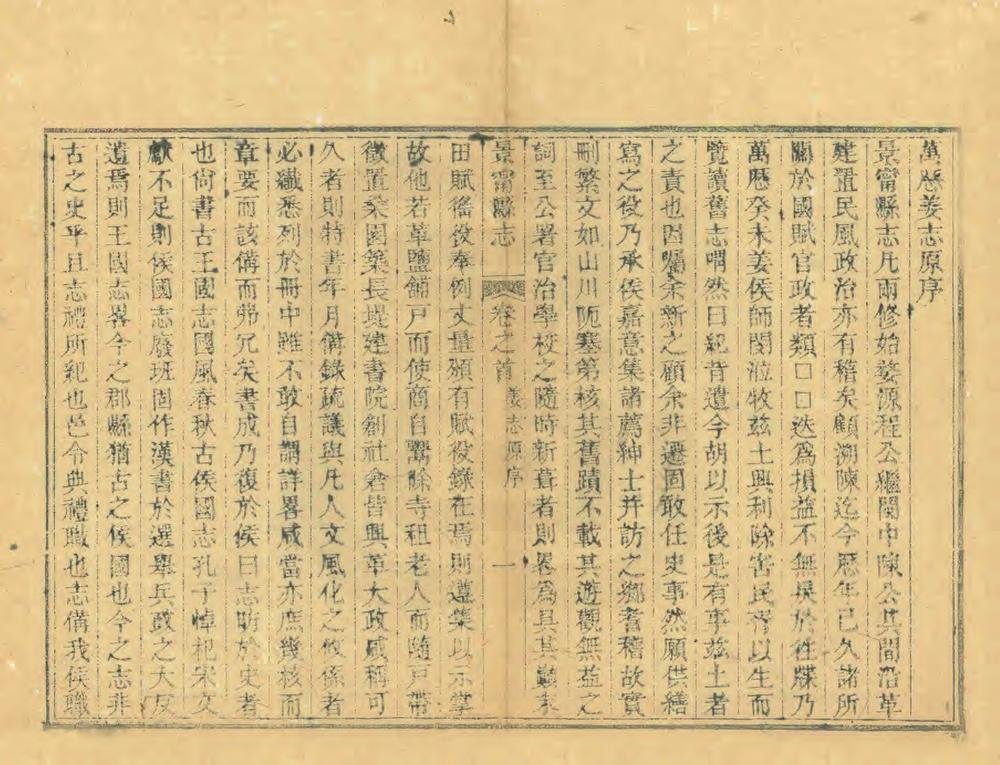 萬厯姜志原序
景甯縣志凡兩修始婺源程公繼閩中陳公其間沿革
建置民風政治亦有稽矣顧溯陳迄今厯年已久諸所
關於國賦官政者類口口迭爲損益不無異於往牒乃
萬厯癸未姜侯師閔涖牧茲土興利除害民胥以生而
覽讀舊志喟然曰紀昔遺今胡以示後是有事茲土者
之責也因囑余新之顧余非遷固敢任史事然願供繕
寫之役乃承侯嘉意集諸薦紳士并訪之鄉耆稽故實
刪繁文如山川阨塞第核其舊蹟不載其遊觀無益之
詞至公署官治學校之隨時新葺者則畧爲具其顚末
景甯縣志 卷之首 姜志原序 一
田賦徭役奉例丈量頒有賦役錄在焉則遵集以示掌
故他若革鹽舖戸而使商自鬻除寺租老人而隨戸帶
徵置桑園築長堤建書院創社倉皆興革大政咸稱可
久者則特書年月備錄疏議與凡人文風化之攸係者
必纖悉列於册中雖不敢自謂詳畧咸當亦庶幾核而
章要而該備而弗冗矣書成乃復於侯曰志昉於史者
也尙書古王國志國風春秋古侯國志孔子悼杞宋文
獻不足則侯國志廢班固作漢書於選舉兵政之大反
遺焉則王國志畧今之郡縣猶古之侯國也今之志非
古之史乎且志禮所紀也邑令典禮職也志備我侯職